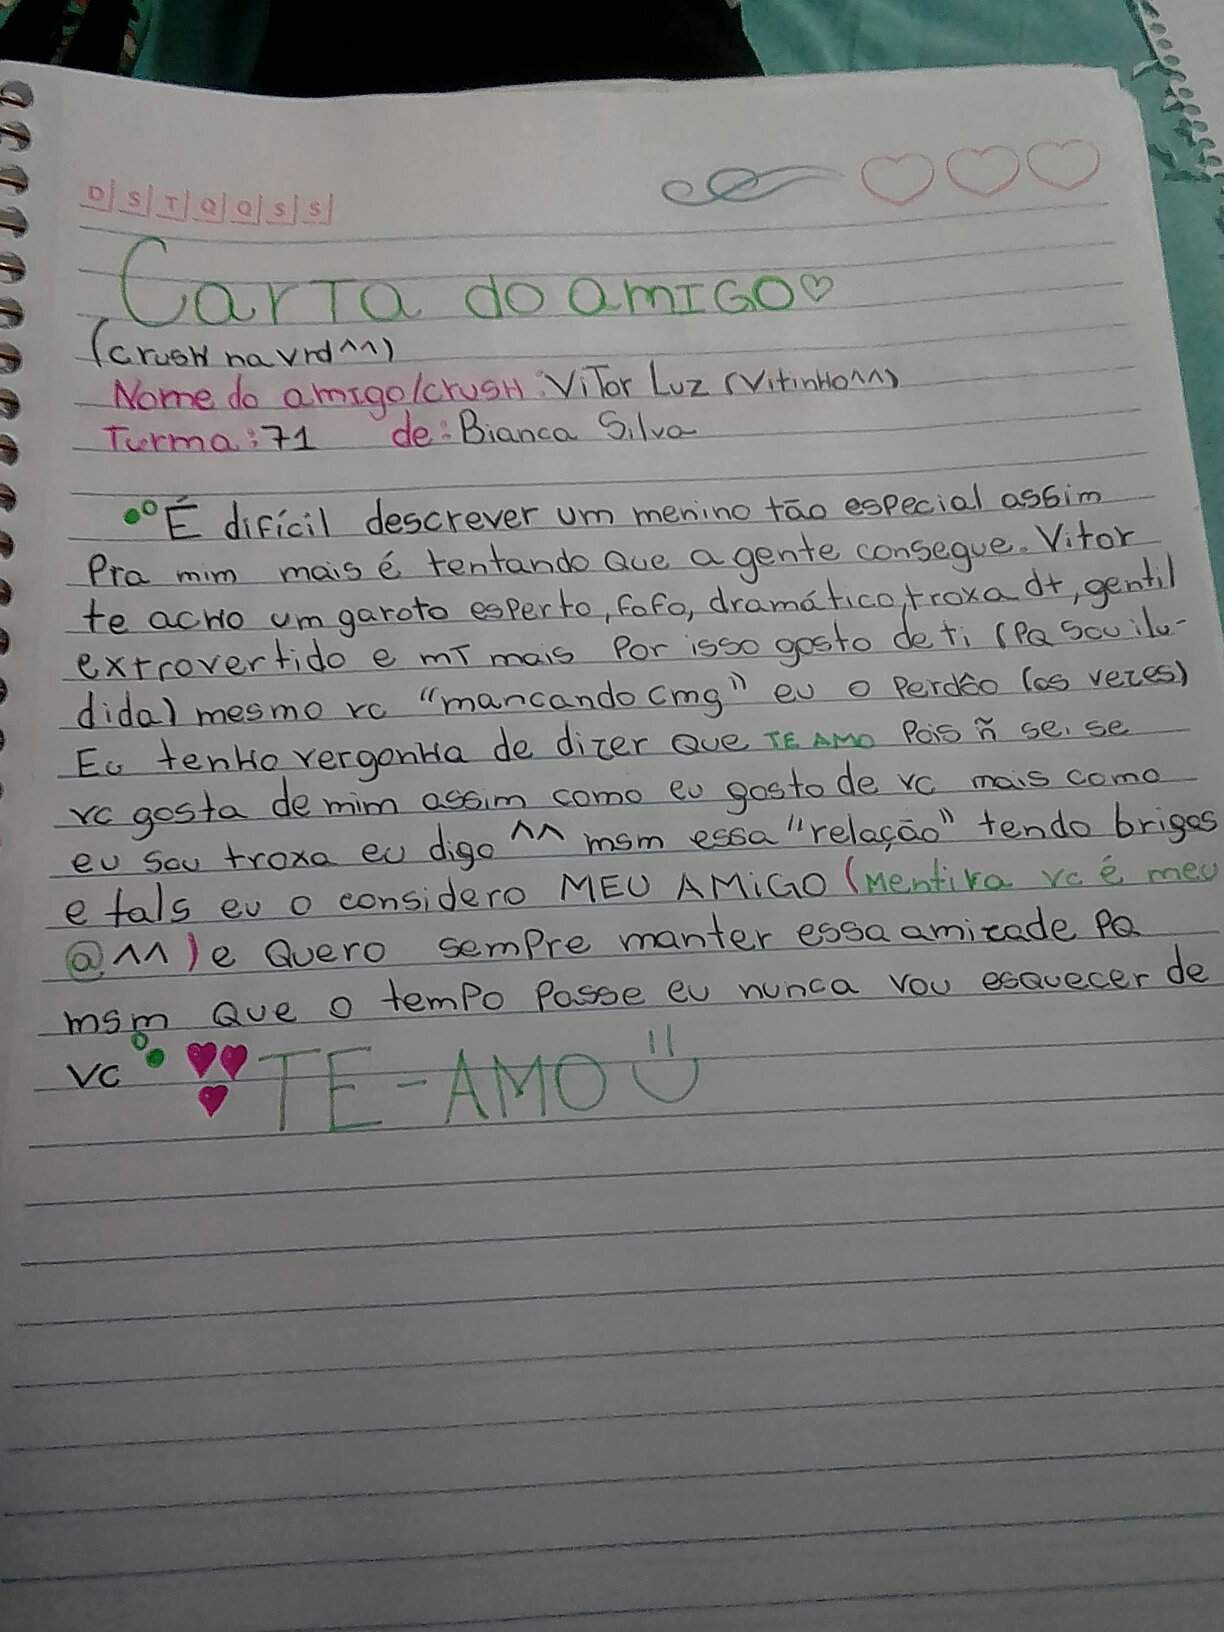 D S T Q Q S S
Carta do amigo♡
(crush na vrd ^^)
Nome do amigo/crush: Vitor Luz (Vitinho^^)
Turma: 71 de: Bianca Silva
É difícil descrever um menino tão especial assim
Pra mim mais é tentando que a gente consegue. Vitor
te acho um garoto esperto, fofo, dramático, troxa dt, gentil
extrovertido e mt mais Por isso gosto de ti (Pq sou ilu-
dida) mesmo vc "mancando cmg" eu o perdôo (as vezes)
Eu tenho vergonha de dizer que TE AMO Pois ñ sei se
vc gosta de mim assim como eu gosto de vc mais como
eu sou troxa eu digo ^^ msm essa "relação" tendo brigas
e tals eu o considero MEU AMIGO (Mentira vc é meu
@^^) e quero sempre manter essa amizade Pq
msm que o tempo passe eu nunca vou esquecer de
vc ♥♥♥ TE-AMO